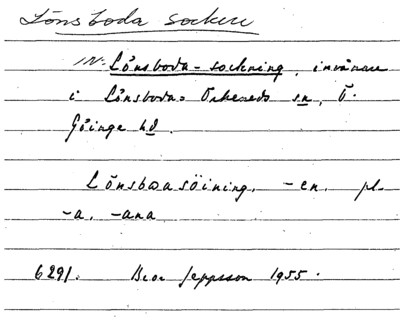 Lönsboda socken
IN: Lönsboda-sockning, invånare
i Lönsboda = Örkeneds sn, Ö.
Göinge hd.
Lönsboasöining, -en, pl.
-a, -ana
6291. Jeppsson 1955.